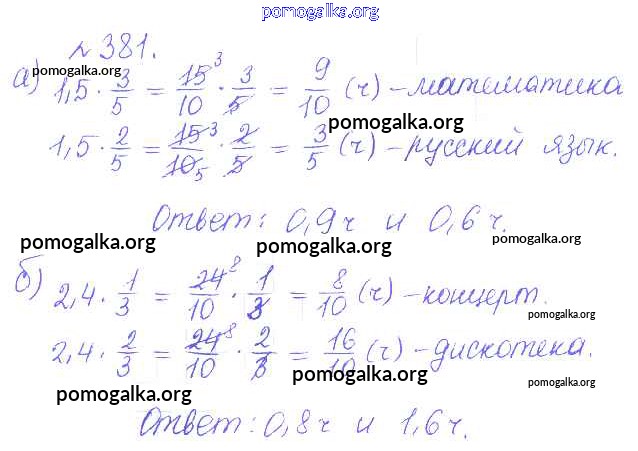 pomogalka.org
№ 381.
pomogalka.org
а) 1,5 · 3/5 = 15³/10 · 3/5 = 9/10 (ч) – математика
pomogalka.org
1,5 · 2/5 = 15³/10₅ · 2/5 = 3/5 (ч) – русский язык.
Ответ: 0,9ч и 0,6ч.
pomogalka.org pomogalka.org pomogalka.org
б) 2,4 · 1/3 = 24⁸/10 · 1/3 = 8/10 (ч) – концерт.
pomogalka.org
2,4 · 2/3 = 24⁸/10 · 2/3 = 16/10 (ч) – дискотека.
pomogalka.org pomogalka.org pomogalka.org
Ответ: 0,8ч и 1,6ч.